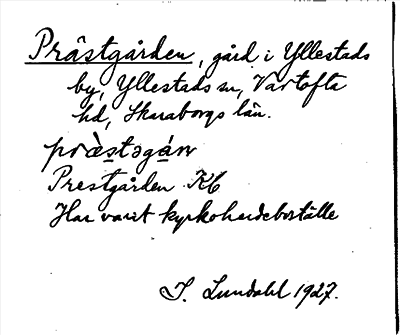 Prästgården, gård i Yllestads
by, Yllestads sn, Vartofta
hd, Skaraborgs län.
prὰstəgán
Prestgården KB
Har varit kyrkoherdeboställe
I. Lundahl 1927.